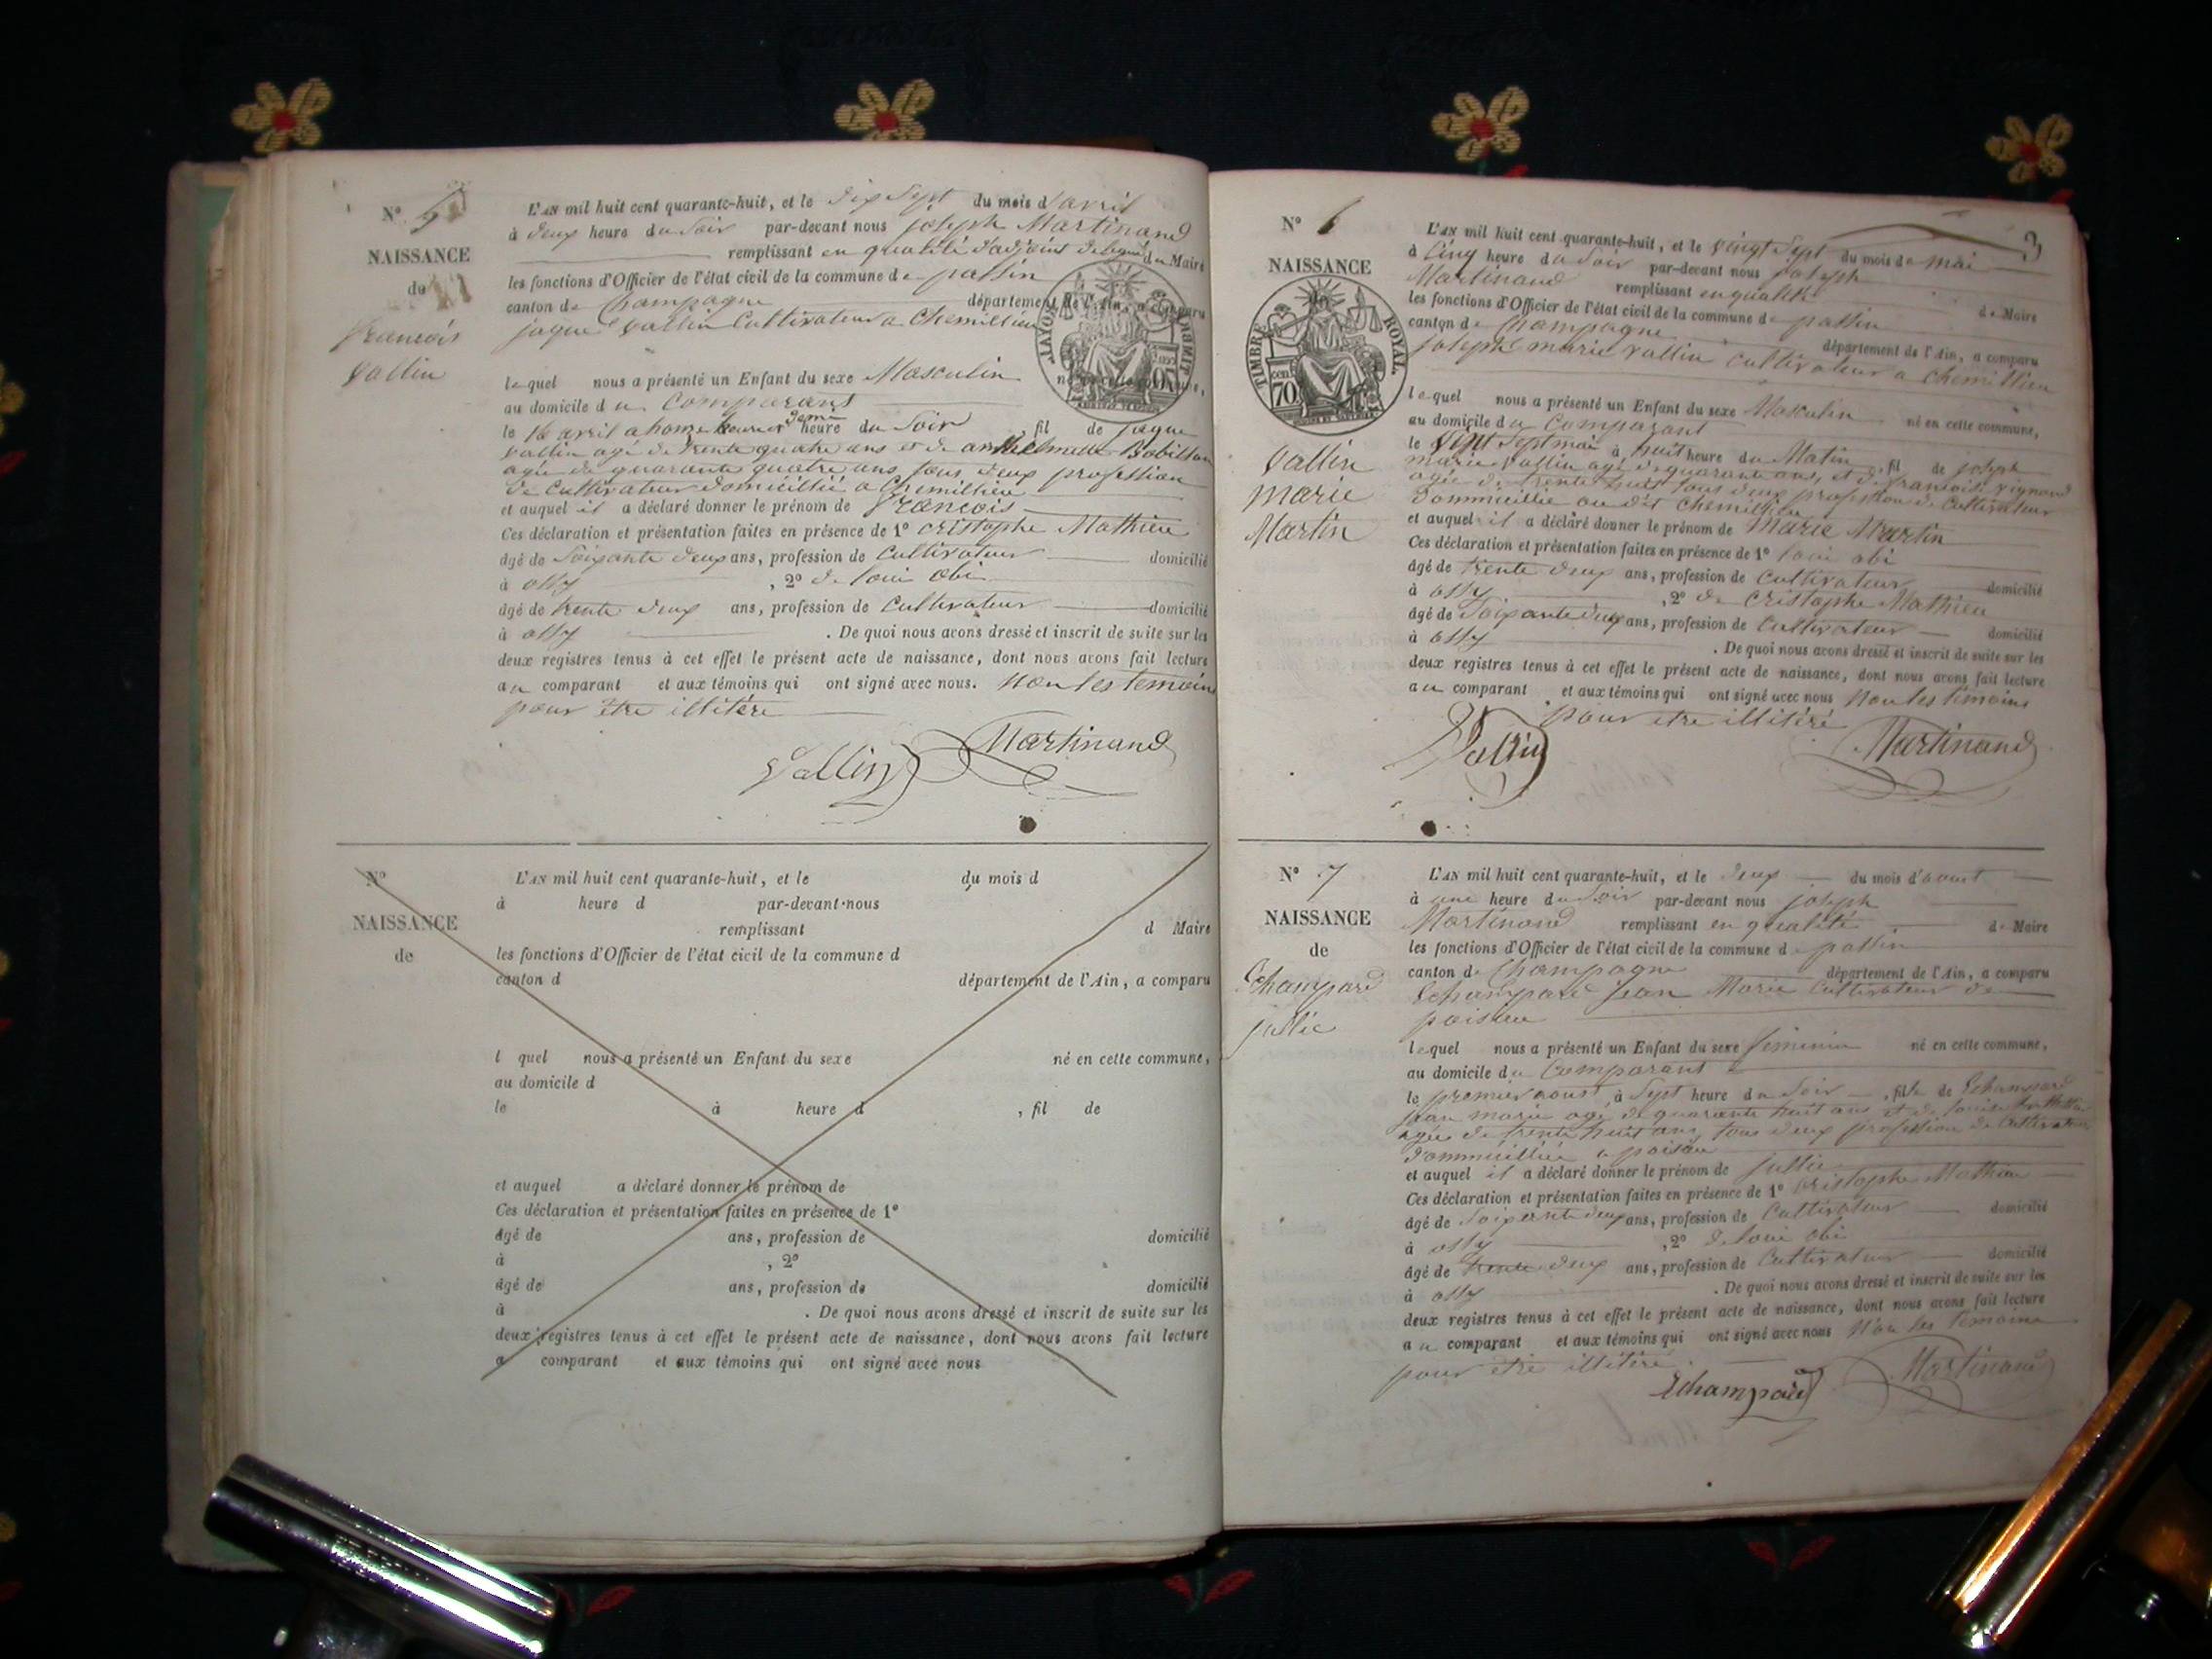 N° 5
NAISSANCE
de
francois
Vallin
L'AN mil huit cent quarante-huit, et le dix Sept du mois d'avril
à deux heure du Soir par-devant nous joseph Martinand
remplissant en qualité d'adjoint delegué du Maire
les fonctions d'Officier de l'état civil de la commune de passin
canton de Champagne département de l'Ain, a comparu
jaque Vallin Cultivateur a Chemillieu
lequel nous a présenté un Enfant du sexe Masculin né en cette commune,
au domicile du Comparant
le 16 avril a honze heure et demi heure du Soir, fil de jaque
Vallin agé de trente quatre ans et de anthelmette Bobillon
agée de quarante quatre ans tous deux profession
de Cultivateur domicillié a Chemillieu
et auquel il a déclaré donner le prénom de francois
Ces déclaration et présentation faites en présence de 1° cristophe Mathieu
âgé de Soixante deux ans, profession de Cultivateur domicilié
à ossy, 2° de loui obi
âgé de trente deux ans, profession de Cultivateur domicilié
à ossy. De quoi nous avons dressé et inscrit de suite sur les
deux registres tenus à cet effet le présent acte de naissance, dont nous avons fait lecture
au comparant et aux témoins qui ont signé avec nous. Non les temoins
pour être illitére
Vallin Martinand
N°
NAISSANCE
de
L'AN mil huit cent quarante-huit, et le du mois d
à heure d par-devant nous
remplissant d Maire
les fonctions d'Officier de l'état civil de la commune d
canton d département de l'Ain, a comparu
l quel nous a présenté un Enfant du sexe né en cette commune,
au domicile d
le à heure d , fil de
et auquel a déclaré donner le prénom de
Ces déclaration et présentation faites en présence de 1°
âgé de ans, profession de domicilié
à , 2°
âgé de ans, profession de domicilié
à . De quoi nous avons dressé et inscrit de suite sur les
deux registres tenus à cet effet le présent acte de naissance, dont nous avons fait lecture
a comparant et aux témoins qui ont signé avec nous
3
N° 6
NAISSANCE
de
TIMBRE ROYAL
70
Vallin
marie
Martin
L'AN mil huit cent quarante-huit, et le vingt Sept du mois de mai
à Cinq heure du Soir par-devant nous joseph
Martinand remplissant en qualité de Maire
les fonctions d'Officier de l'état civil de la commune de passin
canton de Champagne département de l'Ain, a comparu
joseph marie Vallin Cultivateur a Chemillieu
lequel nous a présenté un Enfant du sexe Masculin né en cette commune,
au domicile du Comparant
le vingt Sept mai à huit heure du Matin, fil de joseph
marie Vallin agé de quarante ans, et de francoise vignand
agée de trente huit tous deux profession de Cultivateur
dommicillie au dit Chemillieu
et auquel il a déclaré donner le prénom de Marie Martin
Ces déclaration et présentation faites en présence de 1° loui obi
âgé de trente deux ans, profession de Cultivateur domicilié
à ossy, 2° de Cristophe Mathieu
âgé de Soixante deux ans, profession de Cultivateur domicilié
à ossy. De quoi nous avons dressé et inscrit de suite sur les
deux registres tenus à cet effet le présent acte de naissance, dont nous avons fait lecture
au comparant et aux témoins qui ont signé avec nous Non les temoins
pour etre illitéré
Vallin Martinand
N° 7
NAISSANCE
de
Echampard
jullie
L'AN mil huit cent quarante-huit, et le deux du mois d'aoust
à une heure du Soir par-devant nous joseph
Martinand remplissant en qualité de Maire
les fonctions d'Officier de l'état civil de la commune de passin
canton de Champagne département de l'Ain, a comparu
Echampard jean Marie Cultivateur de
poisieu
lequel nous a présenté un Enfant du sexe feminin né en cette commune,
au domicile du Comparant
le premier aoust à Sept heure du Soir, fille de Echampard
jean marie agé de quarante huit ans et de louise
agée de trente huit ans, tous deux profession de Cultivateur
dommicillié a poisieu
et auquel il a déclaré donner le prénom de jullie
Ces déclaration et présentation faites en présence de 1° Cristophe Mathieu
âgé de Soixante deux ans, profession de Cultivateur domicilié
à ossy, 2° de loui obi
âgé de trente deux ans, profession de Cultivateur domicilié
à ossy. De quoi nous avons dressé et inscrit de suite sur les
deux registres tenus à cet effet le présent acte de naissance, dont nous avons fait lecture
au comparant et aux témoins qui ont signé avec nous Non les temoins
pour être illitére
Echampard Martinand